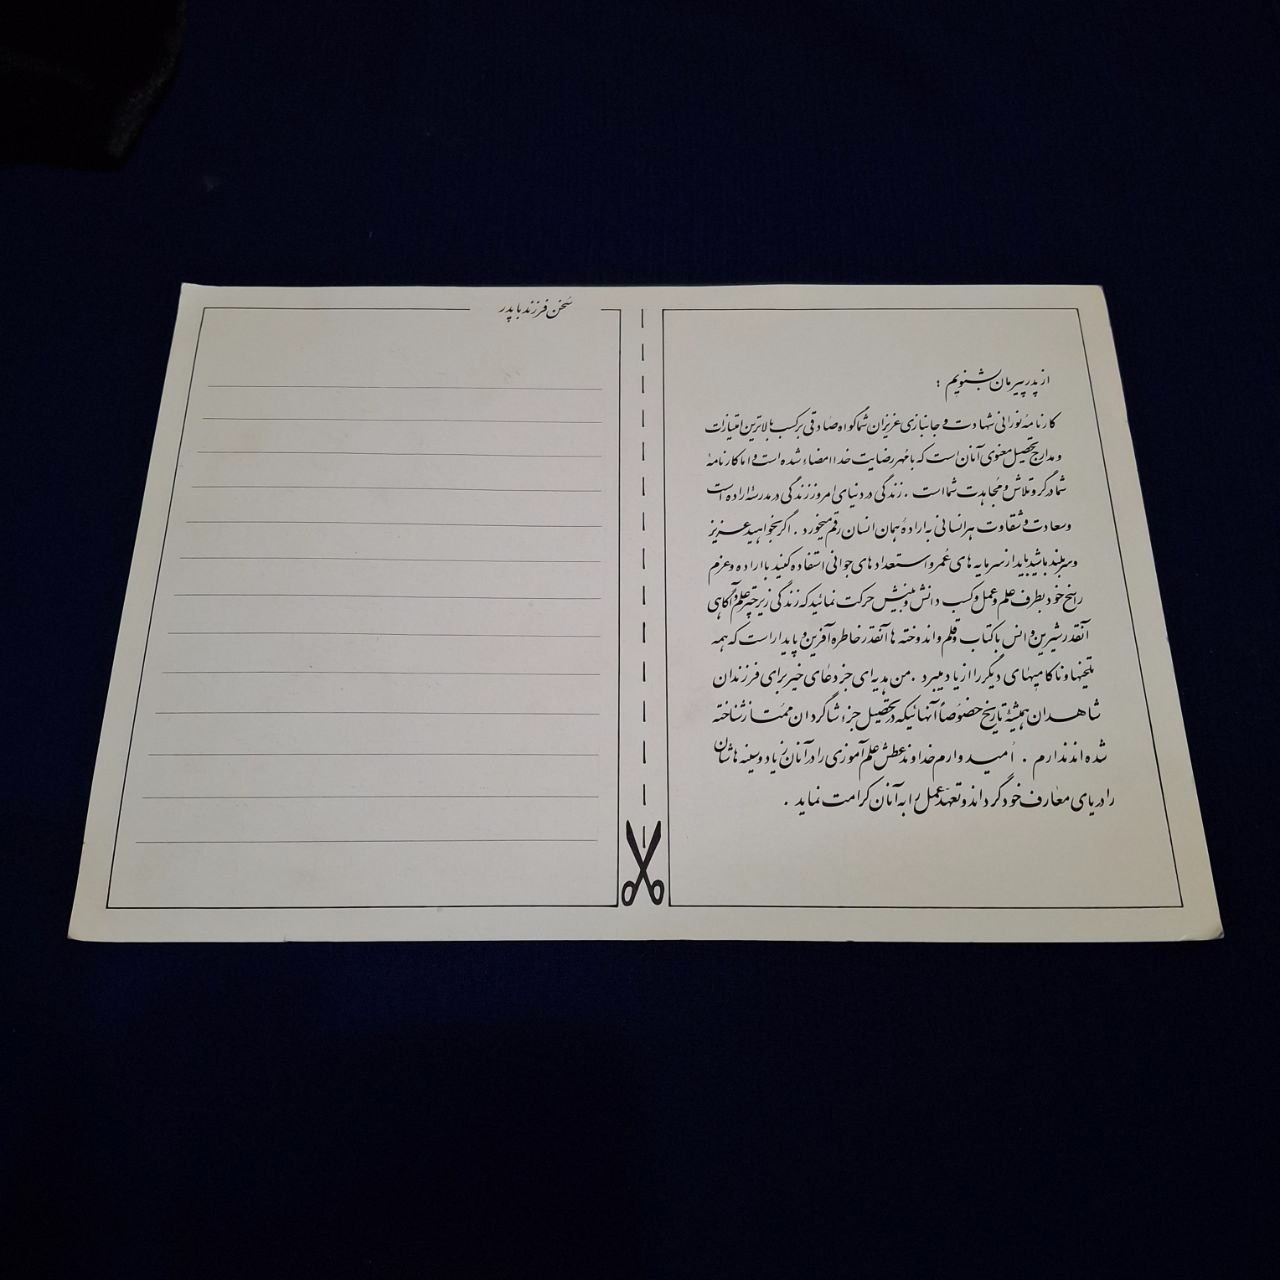 از پدر پیرمان بشنویم :
کارنامهٔ نورانی شهادت و جانبازی عزیزان شما گواه صادقی بر کسب بالاترین امتیازات
و مدارج تحصیل معنوی آنان است که با مُهر رضایت خدا امضاء شده است و اما کارنامهٔ
شما در گرو تلاش و مجاهدت شما است . زندگی در دنیای امروز زندگی در مدرسهٔ اراده است
و سعادت و شقاوت هر انسانی به ارادهٔ همان انسان رقم میخورد . اگر بخواهید عزیز
و سربلند باشید باید از سرمایه های عُمر و استعدادهای جوانی استفاده کنید با اراده و عزم
راسخ خود بطرف علم و عمل و کسب دانش و بینش حرکت نمائید که زندگی زیر چتر علم و آگاهی
آنقدر شیرین و انس با کتاب و قلم و اندوخته ها آنقدر خاطره آفرین و پایدار است که همه
تلخیها و ناکامیهای دیگر را از یاد میبرد . من هدیه ای جز دعای خیر برای فرزندان
شاهدان همیشهٔ تاریخ خصوصاً آنهائیکه در تحصیل جزء شاگردان ممتاز شناخته
شده اند ندارم . اُمیدوارم خداوند عطش علم آموزی را در آنان زیاد و سینه هاشان
را دریای معارف خود گرداند و تعهد عمل را به آنان کرامت نماید .
سُخن فرزند با پدر